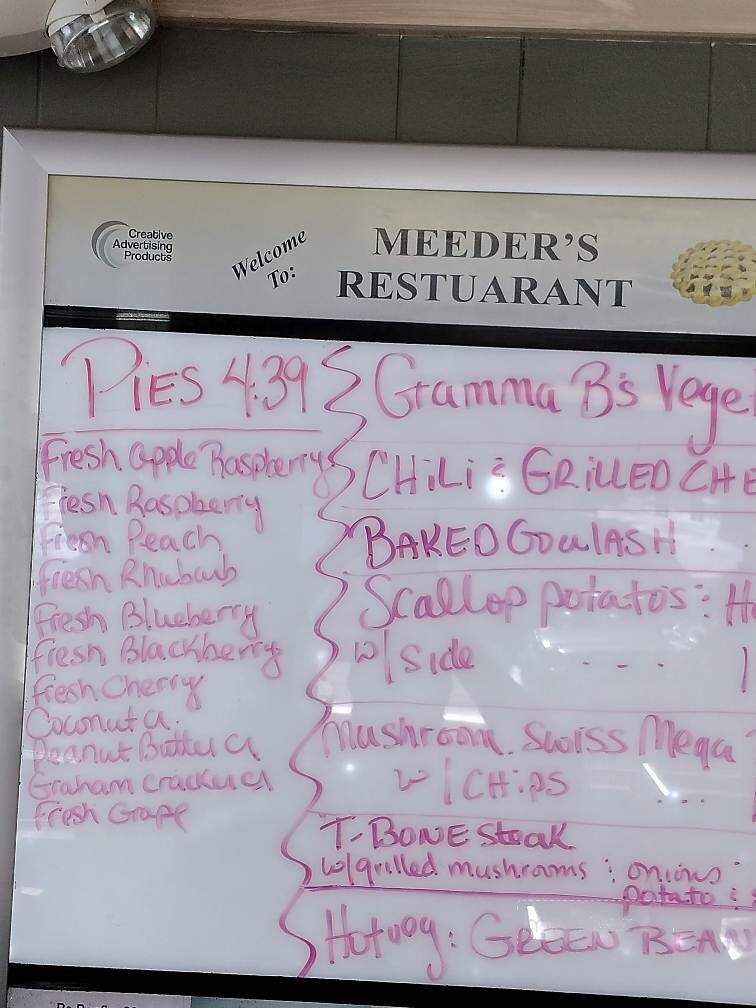 Creative
Advertising
Products
Welcome
To:
MEEDER'S
RESTUARANT
PIES 4.39
Fresh Apple Raspberry
Fresh Raspberry
Fresh Peach
Fresh Rhubarb
Fresh Blueberry
Fresh Blackberry
Fresh Cherry
Coconut a.
Peanut Butter a
Graham cracker a
Fresh Grape
Gramma B's Vege
CHiLi & GRiLLED CHE
BAKED GOulASH . .
Scallop potatos : H
w/ Side . - - .
Mushroom. Swiss Mega
w/ CHiPS ....
T-BONE Steak
w/grilled mushrooms & onions
potato &
Hotdog : GREEN BEAN